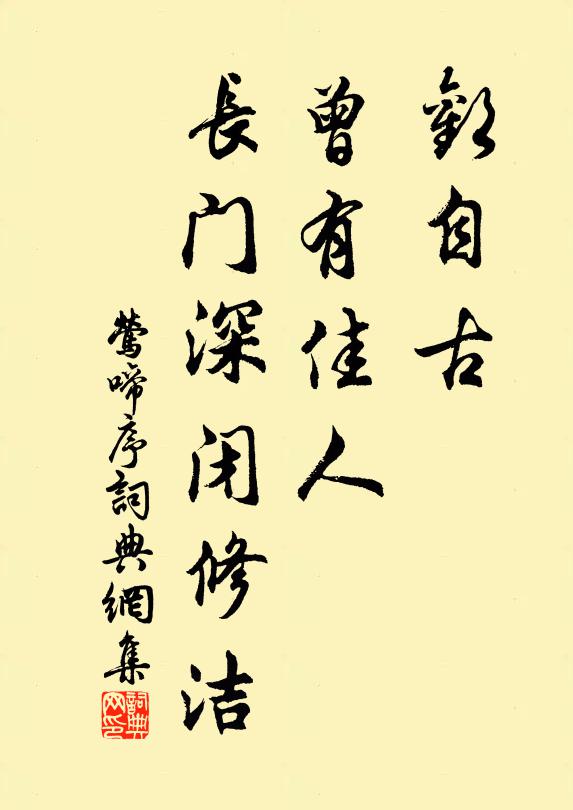 歎自古
曾有佳人
長门深闭修洁
鶯啼序詞典網集
詞典
网印